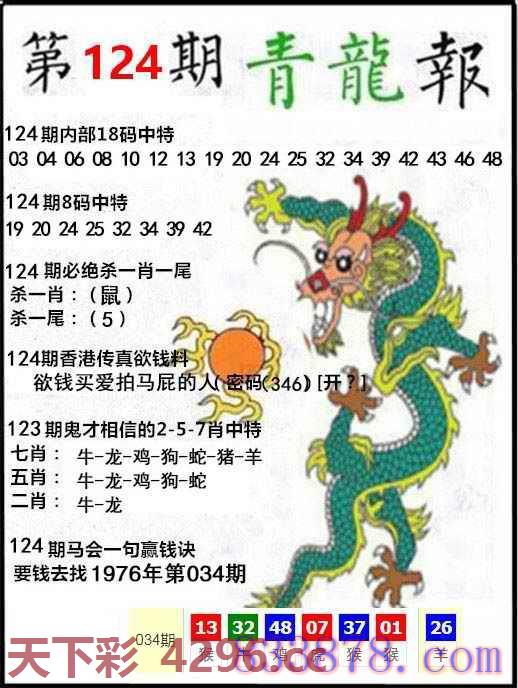 第124期青龍報
124期内部18码中特
03 04 06 08 10 12 13 19 20 24 25 32 34 39 42 43 46 48
124期8码中特
19 20 24 25 32 34 39 42
124期必绝杀一肖一尾
杀一肖：(鼠)
杀一尾：(5)
124期香港传真欲钱料
欲钱买爱拍马屁的人(密码(346)[开?]
123期鬼才相信的2-5-7肖中特
七肖：牛-龙-鸡-狗-蛇-猪-羊
五肖：牛-龙-鸡-狗-蛇
二肖：牛-龙
124期马会一句赢钱诀
要钱去找1976年第034期
034期 13 32 48 07 37 01 26
猴 牛 鸡 虎 猴 猴 羊
天下彩 4296.cc